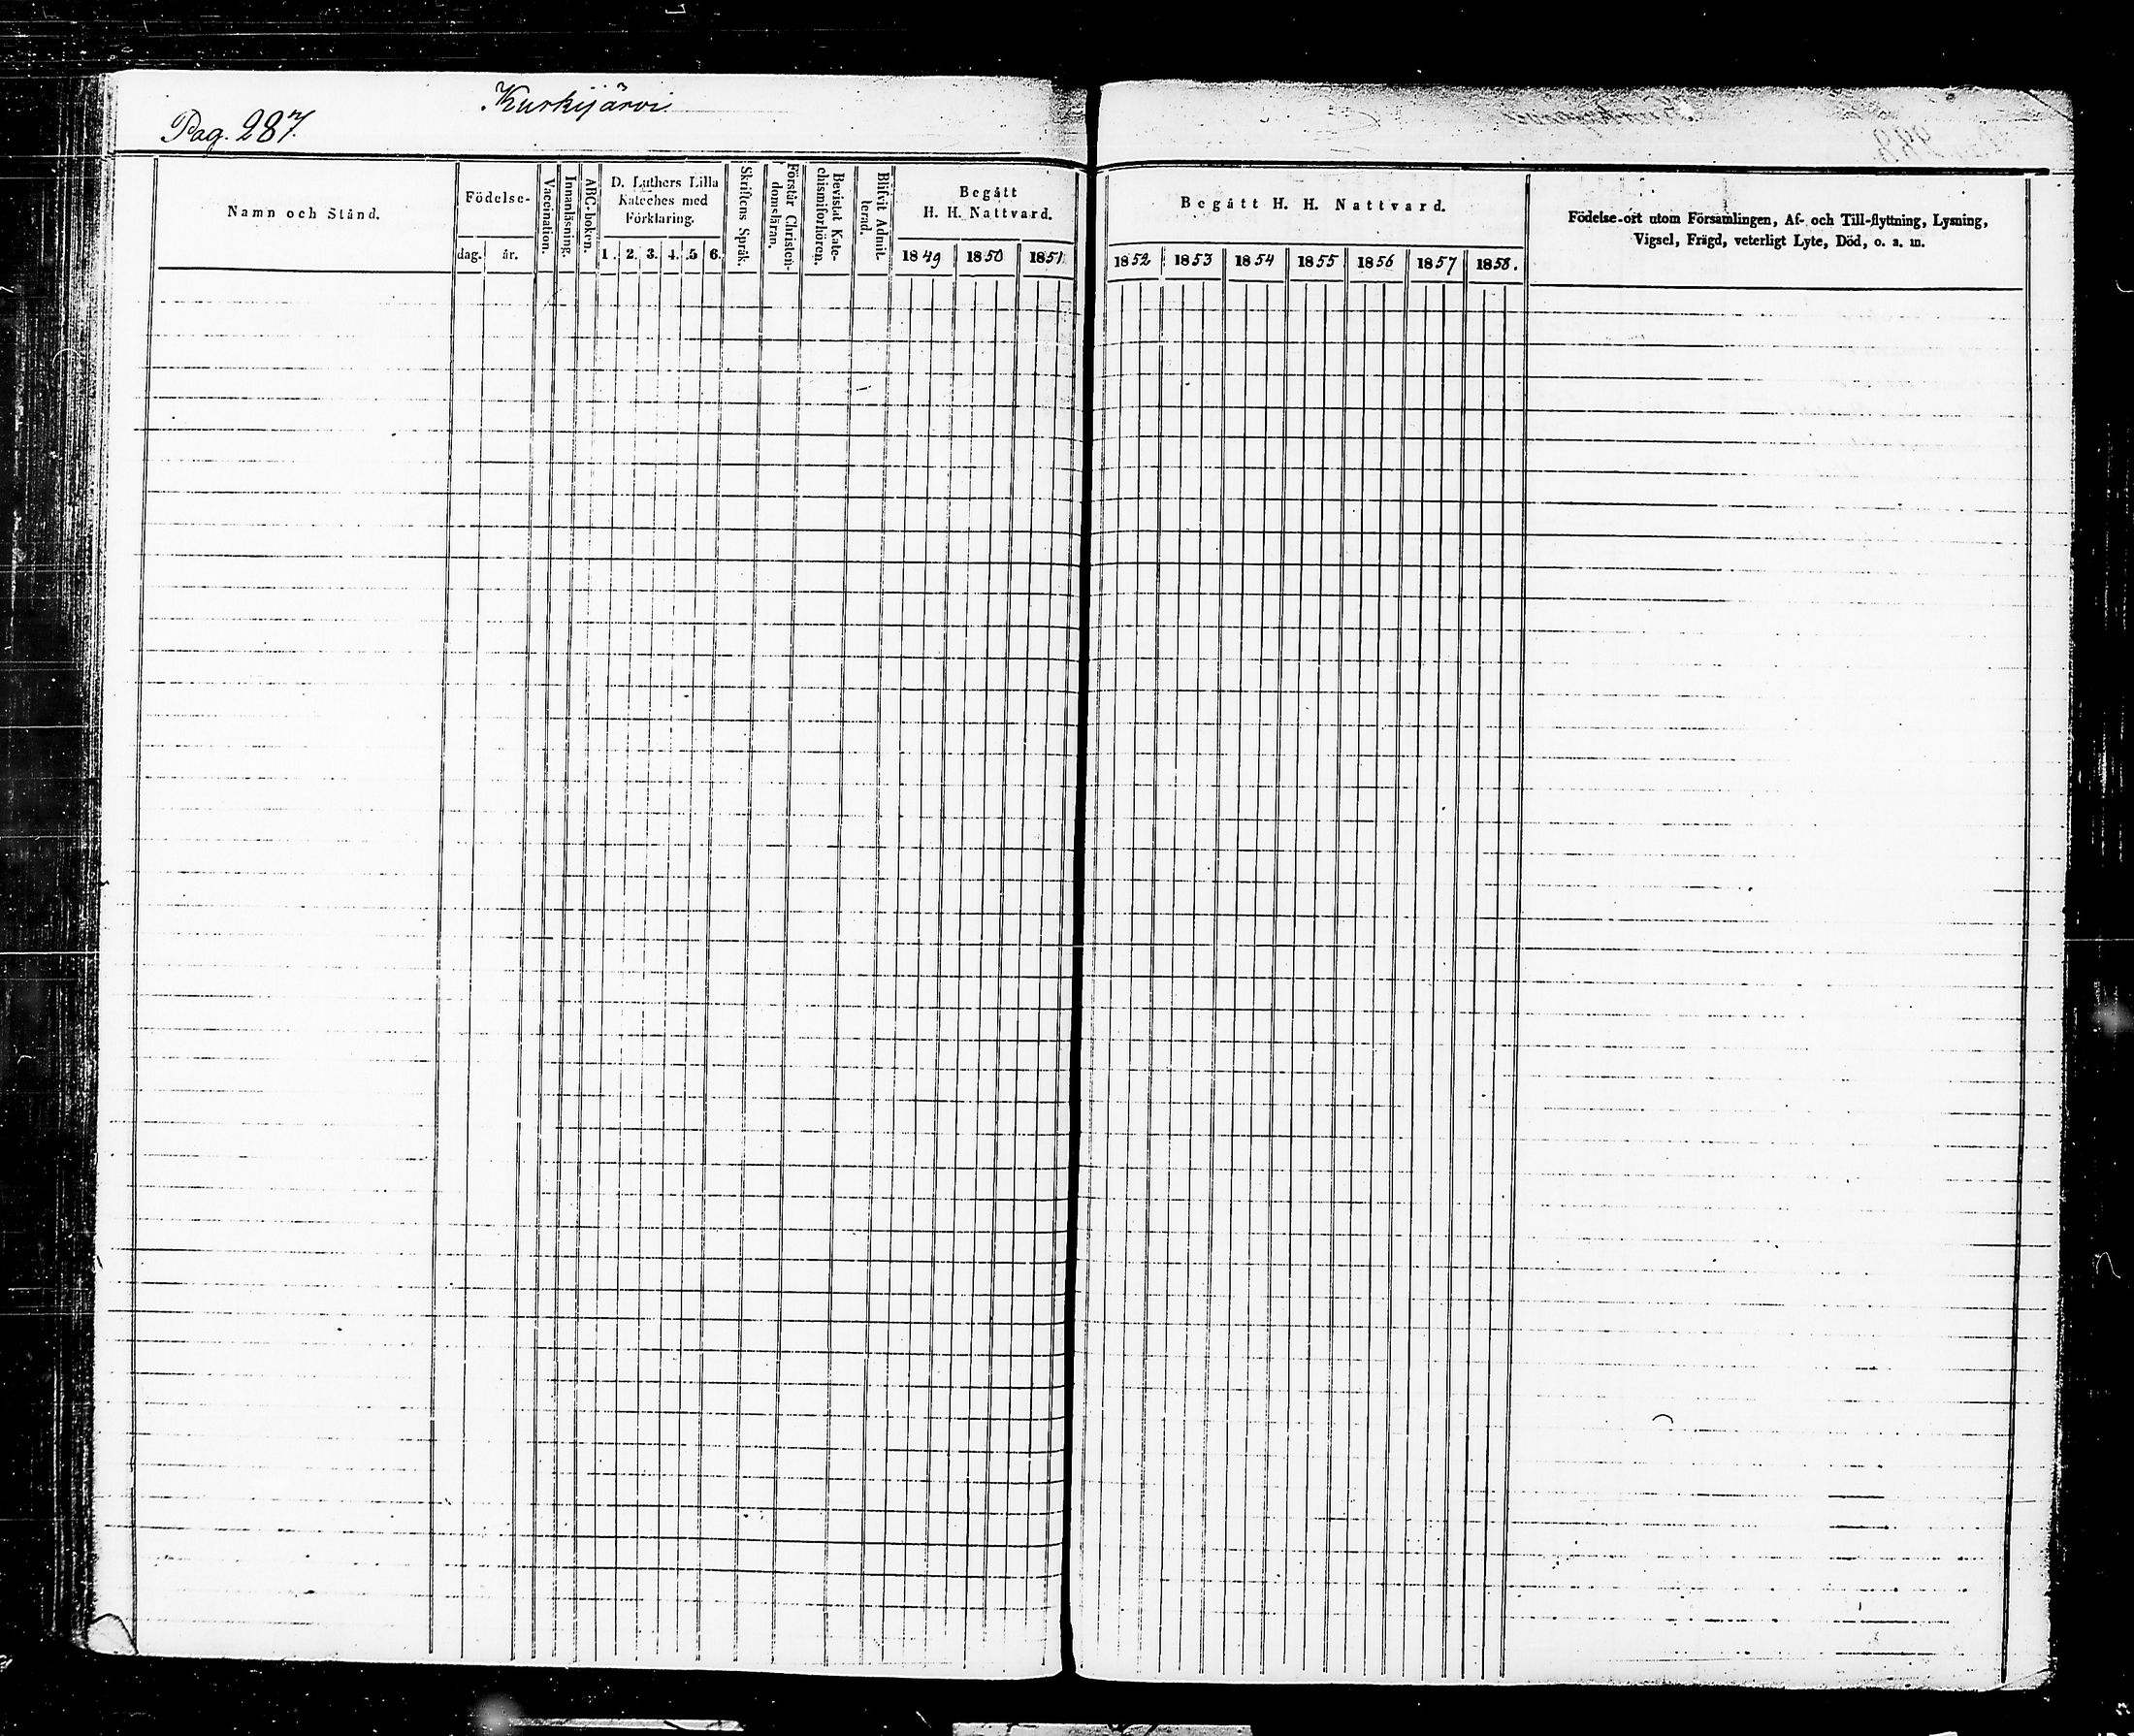 Pag. 287.
Kurkijärvi
Namn och Stånd.
Födelse-
dag.
år.
Vaccination.
Innanläsning.
ABC-boken.
D. Luthers Lilla
Kateches med
Förklaring.
1. 2. 3. 4. 5 6.
Skriftens Språk.
Förstår Christen-
domsläran.
Bevistat Kate-
chismiförhören.
Blifvit Admit-
terad.
Begått
H. H. Nattvard.
1849 1850 1851
Begått H. H. Nattvard.
1852 1853 1854 1855 1856 1857 1858.
Födelse-ort utom Församlingen, Af- och Till-flyttning, Lysning,
Vigsel, Frägd, veterligt Lyte, Död, o. a. m.